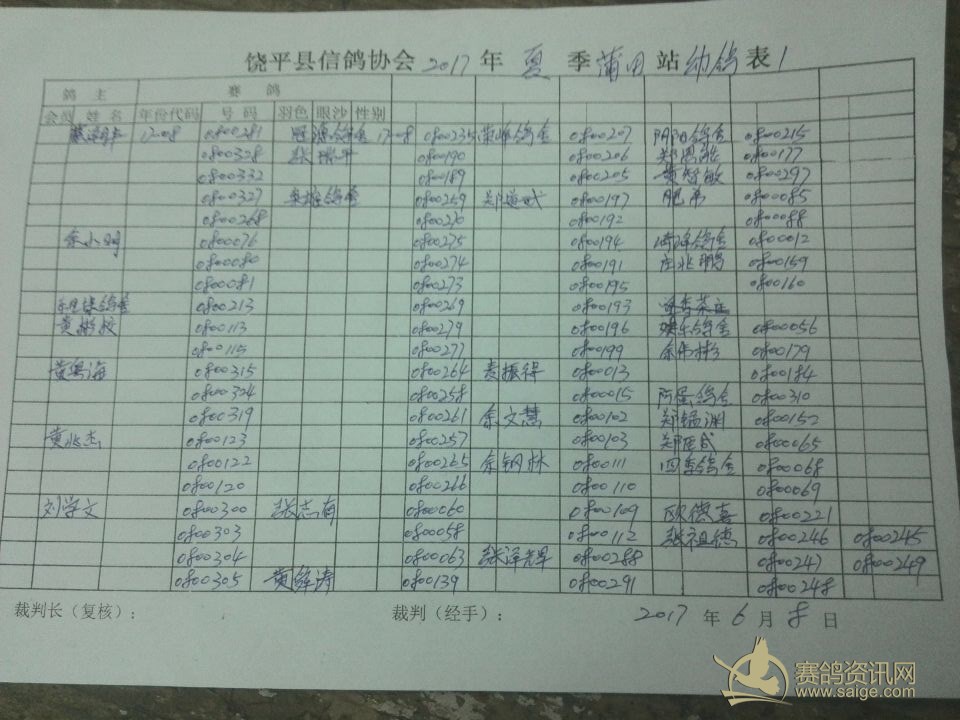 饶平县信鸽协会 2017 年 夏 季 莆田 站 幼鸽 表 1
鸽 主 赛 鸽
会员 姓 名 年份代码 号 码 羽色 眼沙 性别
17-08 0800281 鸽舍 17-08 0800235 鸽舍 0800207 阴阳鸽舍 0800215
0800328 张 平 0800190 0800206 郑 0800177
0800332 0800189 0800205 黄 敏 0800297
0800327 鸽舍 0800259 郑 武 0800197 肥弟 0800085
0800268 0800220 0800192 0800088
余小明 0800076 0800275 0800194 鸽舍 0800012
0800080 0800274 0800191 庄兆鹏 0800159
0800081 0800273 0800195 0800160
鸽舍 0800213 0800269 0800193 茶庄
黄 0800113 0800279 0800196 娱乐鸽舍 0800056
0800115 0800277 0800199 余伟彬 0800179
黄粤海 0800315 0800264 袁振得 0800013 0800184
0800304 0800258 0800015 鸽舍 0800310
0800319 0800261 余文慧 0800102 郑 渊 0800152
黄兆杰 0800123 0800257 0800103 郑 成 0800065
0800122 0800265 余钢林 0800111 四季鸽舍 0800068
0800120 0800266 0800110 0800069
刘学文 0800300 张志有 0800060 0800109 欧德喜 0800221
0800303 0800058 0800112 张祖德 0800246 0800245
0800304 0800063 张泽 0800288 0800247 0800249
0800305 黄 涛 0800139 0800291 0800248
裁判长（复核）： 裁判（经手）： 2017 年 6 月 8 日
赛鸽资讯网
www.saige.com